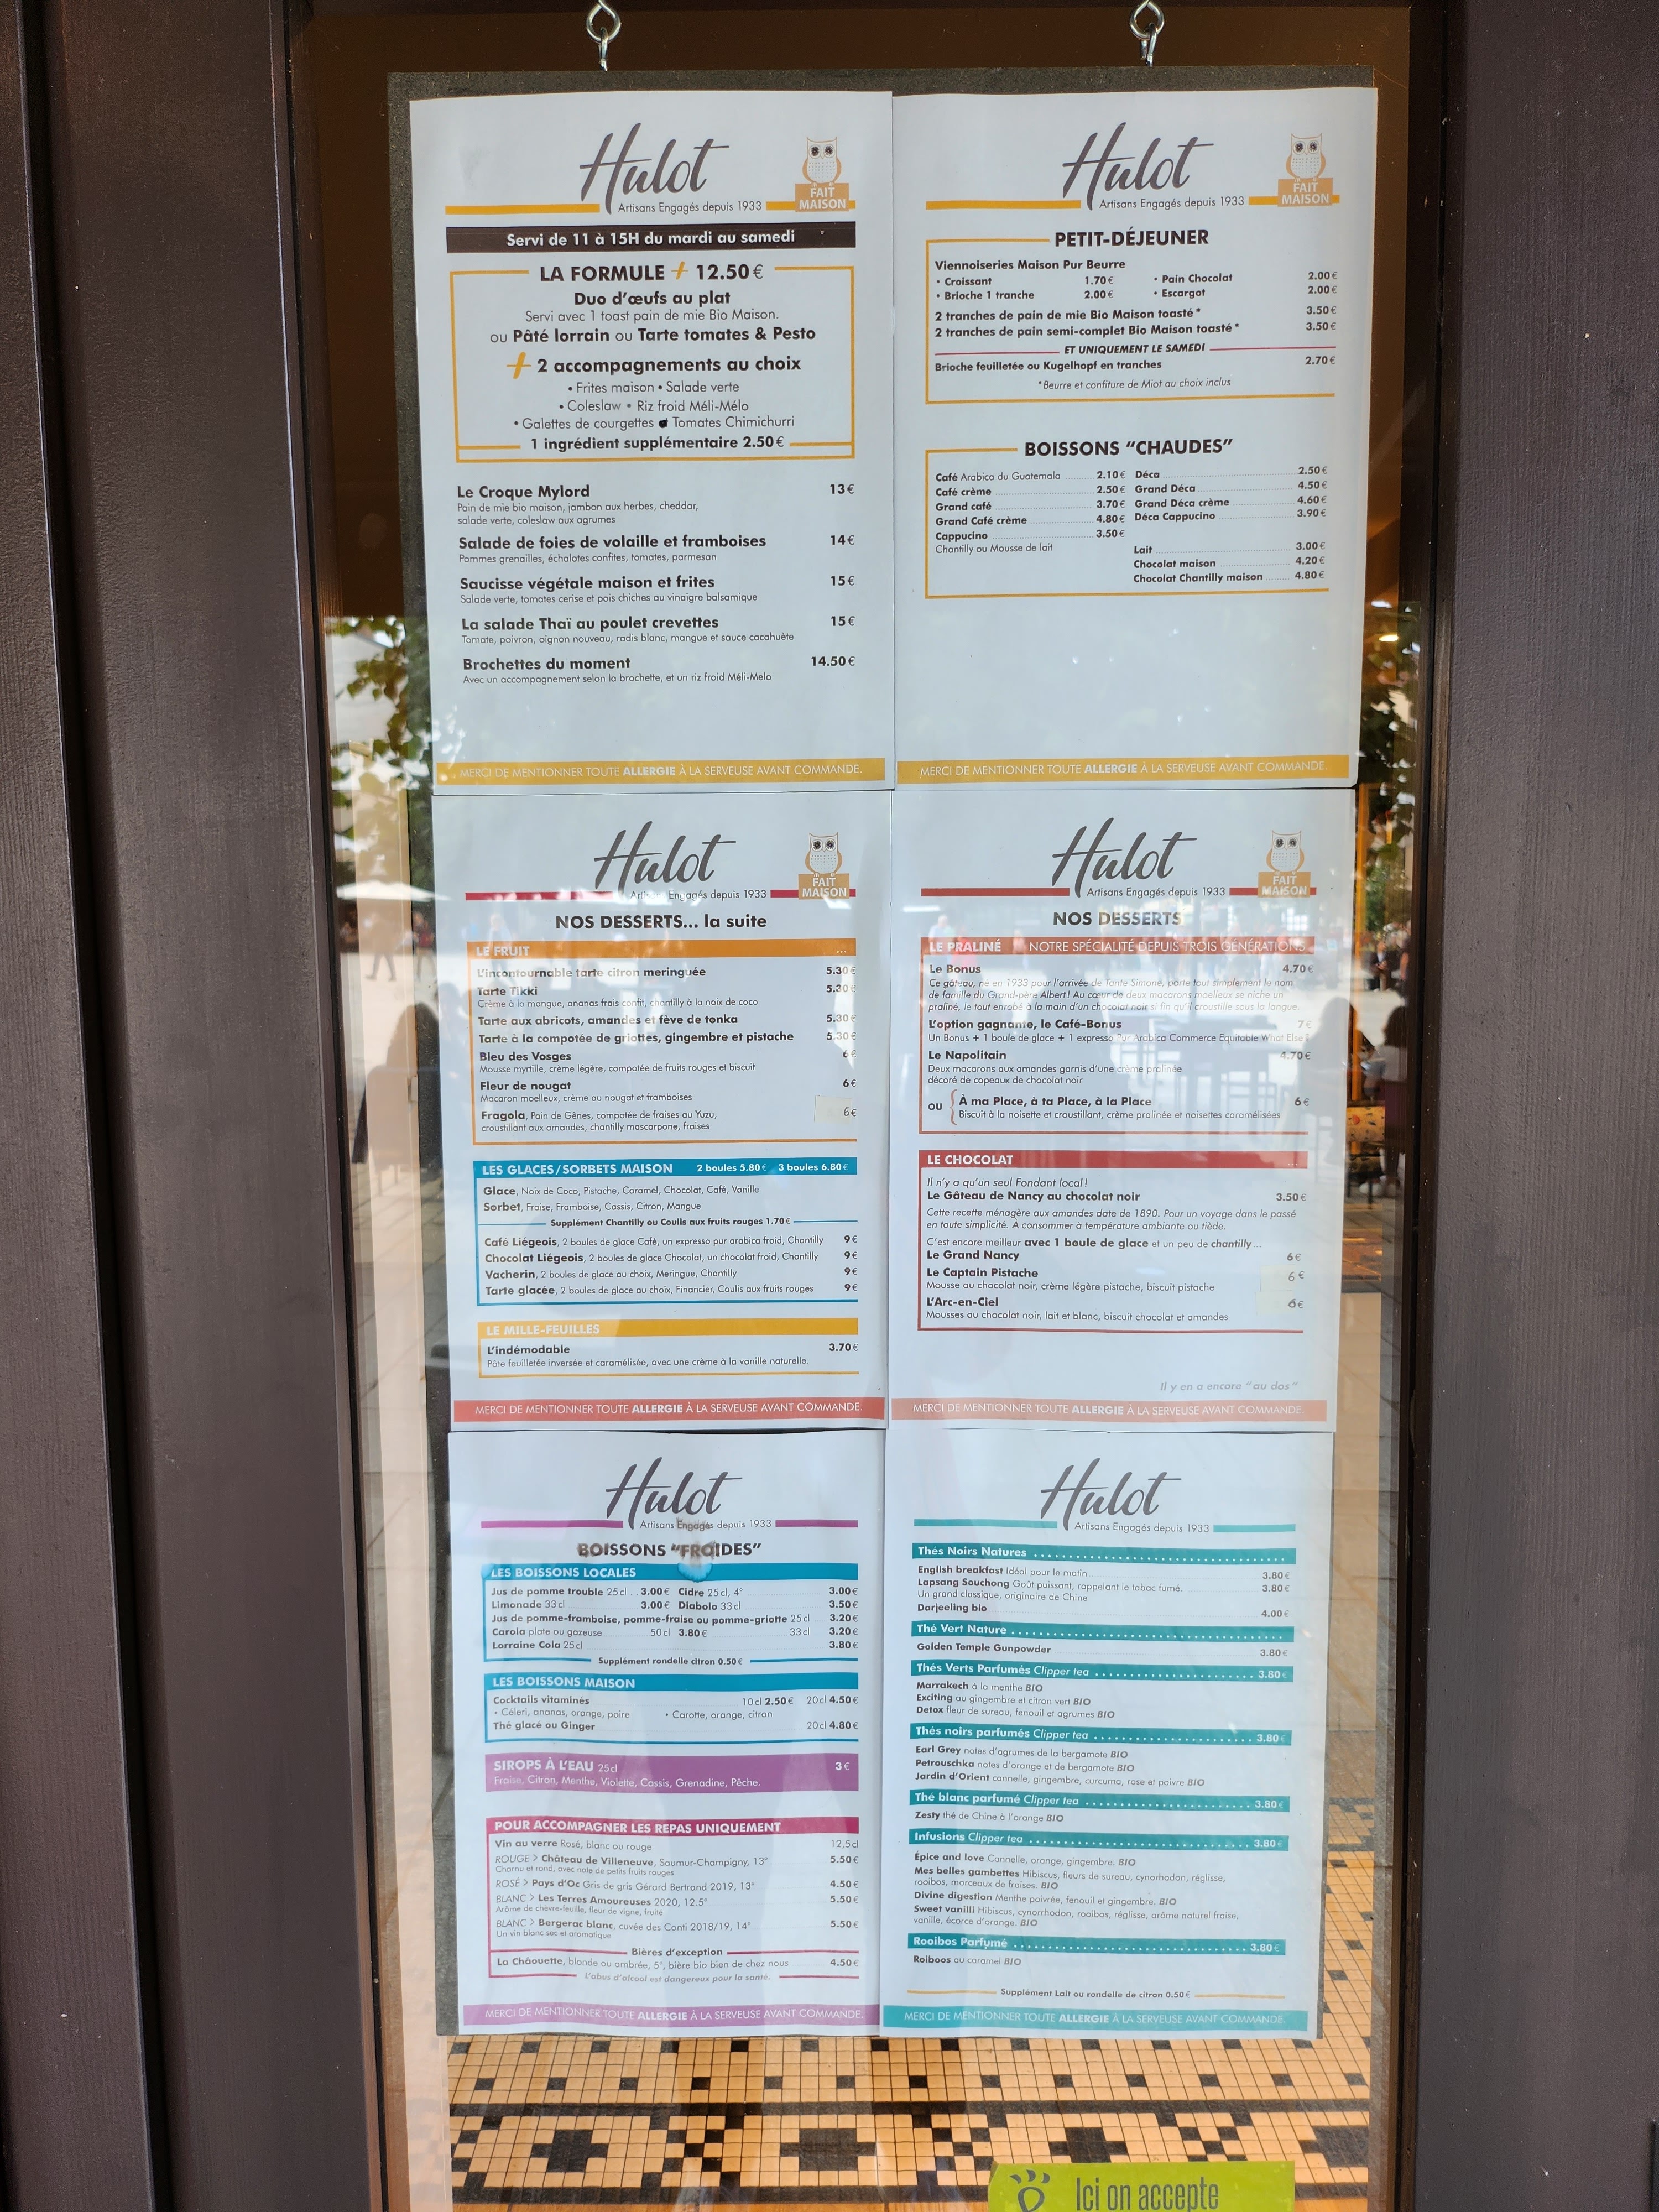 Hulot
Artisans Engagés depuis 1933
FAIT
MAISON
Servi de 11 à 15H du mardi au samedi
LA FORMULE + 12.50€
Duo d'œufs au plat
Servi avec 1 toast pain de mie Bio Maison.
ou Pâté lorrain ou Tarte tomates & Pesto
+ 2 accompagnements au choix
• Frites maison • Salade verte
• Coleslaw • Riz froid Méli-Mélo
• Galettes de courgettes • Tomates Chimichurri
1 ingrédient supplémentaire 2.50€
Le Croque Mylord 13€
Pain de mie bio maison, jambon aux herbes, cheddar,
salade verte, coleslaw aux agrumes
Salade de foies de volaille et framboises 14€
Pommes grenailles, échalotes confites, tomates, parmesan
Saucisse végétale maison et frites 15€
Salade verte, tomates cerise et pois chiches au vinaigre balsamique
La salade Thaï au poulet crevettes 15€
Tomate, poivron, oignon nouveau, radis blanc, mangue et sauce cacahuète
Brochettes du moment 14.50€
Avec un accompagnement selon la brochette, et un riz froid Méli-Melo
MERCI DE MENTIONNER TOUTE ALLERGIE À LA SERVEUSE AVANT COMMANDE.
Hulot
Artisans Engagés depuis 1933
FAIT
MAISON
PETIT-DÉJEUNER
Viennoiseries Maison Pur Beurre
• Croissant 1.70€ • Pain Chocolat 2.00€
• Brioche 1 tranche 2.00€ • Escargot 2.00€
2 tranches de pain de mie Bio Maison toasté* 3.50€
2 tranches de pain semi-complet Bio Maison toasté* 3.50€
ET UNIQUEMENT LE SAMEDI
Brioche feuilletée ou Kugelhopf en tranches 2.70€
*Beurre et confiture de Miot au choix inclus
BOISSONS "CHAUDES"
Café Arabica du Guatemala 2.10€ Déca 2.50€
Café crème 2.50€ Grand Déca 4.50€
Grand café 3.70€ Grand Déca crème 4.60€
Grand Café crème 4.80€ Déca Cappucino 3.90€
Cappucino 3.50€
Chantilly ou Mousse de lait Lait 3.00€
Chocolat maison 4.20€
Chocolat Chantilly maison 4.80€
MERCI DE MENTIONNER TOUTE ALLERGIE À LA SERVEUSE AVANT COMMANDE.
Hulot
Engagés depuis 1933
FAIT
MAISON
NOS DESSERTS... la suite
LE FRUIT ...
L'incontournable tarte citron meringuée 5.30€
Tarte Tikki 5.30€
Crème à la mangue, ananas frais confit, chantilly à la noix de coco
Tarte aux abricots, amandes et fève de tonka 5.30€
Tarte à la compotée de griottes, gingembre et pistache 5.30€
Bleu des Vosges 6€
Mousse myrtille, crème légère, compotée de fruits rouges et biscuit
Fleur de nougat 6€
Macaron moelleux, crème au nougat et framboises
Fragola, Pain de Gênes, compotée de fraises au Yuzu, 6€
croustillant aux amandes, chantilly mascarpone, fraises
LES GLACES/SORBETS MAISON 2 boules 5.80€ 3 boules 6.80€
Glace, Noix de Coco, Pistache, Caramel, Chocolat, Café, Vanille
Sorbet, Fraise, Framboise, Cassis, Citron, Mangue
Supplément Chantilly ou Coulis aux fruits rouges 1.70€
Café Liégeois, 2 boules de glace Café, un expresso pur arabica froid, Chantilly 9€
Chocolat Liégeois, 2 boules de glace Chocolat, un chocolat froid, Chantilly 9€
Vacherin, 2 boules de glace au choix, Meringue, Chantilly 9€
Tarte glacée, 2 boules de glace au choix, Financier, Coulis aux fruits rouges 9€
LE MILLE-FEUILLES
L'indémodable 3.70€
Pâte feuilletée inversée et caramélisée, avec une crème à la vanille naturelle.
MERCI DE MENTIONNER TOUTE ALLERGIE À LA SERVEUSE AVANT COMMANDE.
Hulot
Artisans Engagés depuis 1933
FAIT
MAISON
NOS DESSERTS
LE PRALINÉ NOTRE SPÉCIALITÉ DEPUIS TROIS GÉNÉRATIONS...
Le Bonus 4.70€
Ce gâteau, né en 1933 pour l'arrivée de Tante Simone, porte tout simplement le nom
de famille du Grand-père Albert! Au cœur de deux macarons moelleux se niche un
praliné, le tout enrobé à la main d'un chocolat noir si fin qu'il croustille sous la langue.
L'option gagnante, le Café-Bonus 7€
Un Bonus + 1 boule de glace + 1 expresso Pur Arabica Commerce Equitable What Else?
Le Napolitain 4.70€
Deux macarons aux amandes garnis d'une crème pralinée
décoré de copeaux de chocolat noir
ou { À ma Place, à ta Place, à la Place 6€
Biscuit à la noisette et croustillant, crème pralinée et noisettes caramélisées
LE CHOCOLAT ...
Il n'y a qu'un seul Fondant local!
Le Gâteau de Nancy au chocolat noir 3.50€
Cette recette ménagère aux amandes date de 1890. Pour un voyage dans le passé
en toute simplicité. À consommer à température ambiante ou tiède.
C'est encore meilleur avec 1 boule de glace et un peu de chantilly...
Le Grand Nancy 6€
Le Captain Pistache 6€
Mousse au chocolat noir, crème légère pistache, biscuit pistache
L'Arc-en-Ciel 6€
Mousses au chocolat noir, lait et blanc, biscuit chocolat et amandes
Il y en a encore "au dos"
MERCI DE MENTIONNER TOUTE ALLERGIE À LA SERVEUSE AVANT COMMANDE.
Hulot
Artisans Engagés depuis 1933
BOISSONS "FROIDES"
LES BOISSONS LOCALES
Jus de pomme trouble 25cl .. 3.00€ Cidre 25cl, 4° 3.00€
Limonade 33cl 3.00€ Diabolo 33cl 3.50€
Jus de pomme-framboise, pomme-fraise ou pomme-griotte 25cl 3.20€
Carola plate ou gazeuse 50cl 3.80€ 33cl 3.20€
Lorraine Cola 25cl 3.80€
Supplément rondelle citron 0.50€
LES BOISSONS MAISON
Cocktails vitaminés 10cl 2.50€ 20cl 4.50€
• Céleri, ananas, orange, poire • Carotte, orange, citron
Thé glacé ou Ginger 20cl 4.80€
SIROPS À L'EAU 25cl 3€
Fraise, Citron, Menthe, Violette, Cassis, Grenadine, Pêche.
POUR ACCOMPAGNER LES REPAS UNIQUEMENT
Vin au verre Rosé, blanc ou rouge 12,5cl
ROUGE > Château de Villeneuve, Saumur-Champigny, 13° 5.50€
Charnu et rond, avec note de petits fruits rouges
ROSÉ > Pays d'Oc Gris de gris Gérard Bertrand 2019, 13° 4.50€
BLANC > Les Terres Amoureuses 2020, 12.5° 5.50€
Arôme de chèvre-feuille, fleur de vigne, fruité
BLANC > Bergerac blanc, cuvée des Conti 2018/19, 14° 5.50€
Un vin blanc sec et aromatique
Bières d'exception
La Chåouette, blonde ou ambrée, 5°, bière bio bien de chez nous 4.50€
L'abus d'alcool est dangereux pour la santé.
MERCI DE MENTIONNER TOUTE ALLERGIE À LA SERVEUSE AVANT COMMANDE.
Hulot
Artisans Engagés depuis 1933
Thés Noirs Natures
English breakfast Idéal pour le matin 3.80€
Lapsang Souchong Goût puissant, rappelant le tabac fumé. 3.80€
Un grand classique, originaire de Chine
Darjeeling bio 4.00€
Thé Vert Nature
Golden Temple Gunpowder 3.80€
Thés Verts Parfumés Clipper tea 3.80€
Marrakech à la menthe BIO
Exciting au gingembre et citron vert BIO
Detox fleur de sureau, fenouil et agrumes BIO
Thés noirs parfumés Clipper tea 3.80€
Earl Grey notes d'agrumes de la bergamote BIO
Petrouschka notes d'orange et de bergamote BIO
Jardin d'Orient cannelle, gingembre, curcuma, rose et poivre BIO
Thé blanc parfumé Clipper tea 3.80€
Zesty thé de Chine à l'orange BIO
Infusions Clipper tea 3.80€
Épice and love Cannelle, orange, gingembre. BIO
Mes belles gambettes Hibiscus, fleurs de sureau, cynorhodon, réglisse,
rooibos, morceaux de fraises. BIO
Divine digestion Menthe poivrée, fenouil et gingembre. BIO
Sweet vanilli Hibiscus, cynorrhodon, rooibos, réglisse, arôme naturel fraise,
vanille, écorce d'orange. BIO
Rooibos Parfumé 3.80€
Roiboos au caramel BIO
Supplément Lait ou rondelle de citron 0.50€
MERCI DE MENTIONNER TOUTE ALLERGIE À LA SERVEUSE AVANT COMMANDE.
Ici on accepte